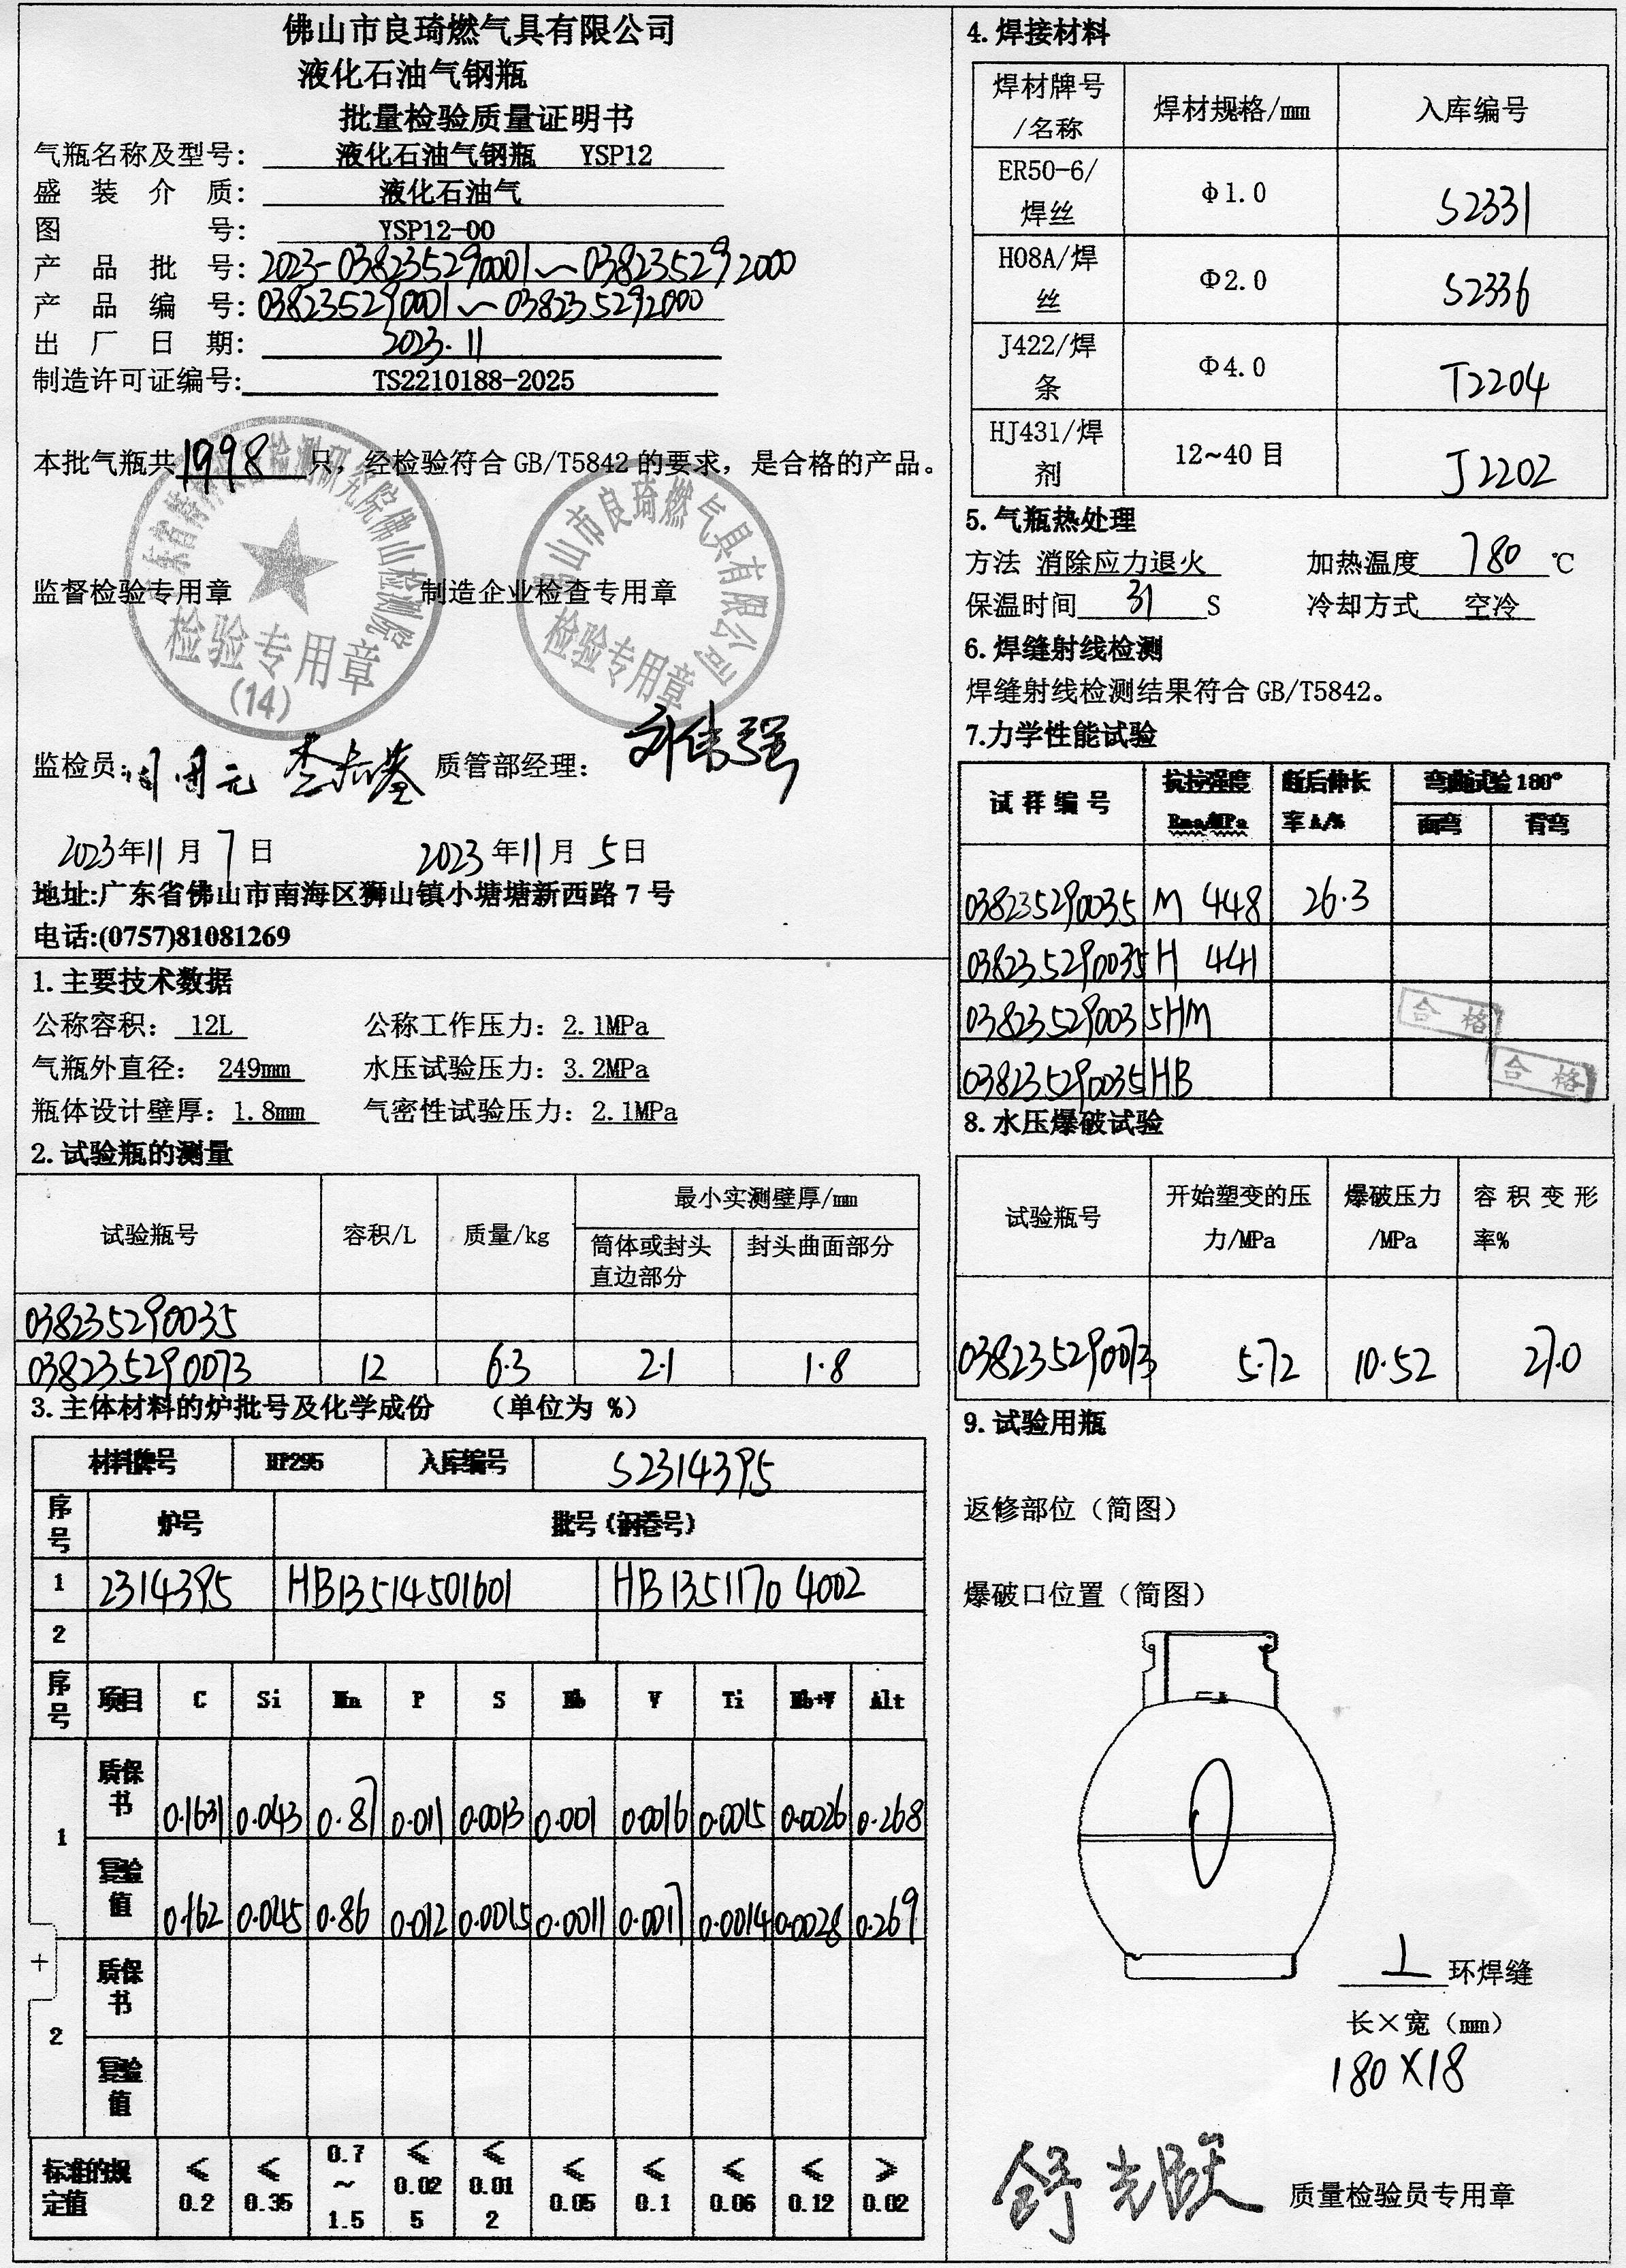 佛山市良琦燃气具有限公司
液化石油气钢瓶
批量检验质量证明书
气瓶名称及型号: 液化石油气钢瓶 YSP12
盛装介质: 液化石油气
图号: YSP12-00
产品批号: 2023-038235290001～038235292000
产品编号: 038235290001～038235292000
出厂日期: 2023.11
制造许可证编号: TS2210188-2025
本批气瓶共 1998 只, 经检验符合 GB/T5842 的要求, 是合格的产品。
广东省特种设备检测研究院佛山检测院
检验专用章
(14)
佛山市良琦燃气具有限公司
检验专用章
监督检验专用章 制造企业检查专用章
监检员: 质管部经理: 刘伟强
2023年11月7日 2023年11月5日
地址:广东省佛山市南海区狮山镇小塘塘新西路 7 号
电话:(0757)81081269
1.主要技术数据
公称容积: 12L 公称工作压力: 2.1MPa
气瓶外直径: 249mm 水压试验压力: 3.2MPa
瓶体设计壁厚: 1.8mm 气密性试验压力: 2.1MPa
2.试验瓶的测量
试验瓶号 容积/L 质量/kg 最小实测壁厚/mm
筒体或封头直边部分 封头曲面部分
038235290035
038235290073 12 6.3 2.1 1.8
3.主体材料的炉批号及化学成份 (单位为 %)
材料牌号 HP295 入库编号 S2314395
序号 炉号 批号(钢卷号)
1 2314395 HB13514501601 HB13511704002
2
序号 项目 C Si Mn P S Nb V Ti Nb+V Alt
1 质保书 0.1631 0.043 0.87 0.011 0.0013 0.001 0.0016 0.0015 0.0026 0.268
复验值 0.162 0.045 0.86 0.012 0.0015 0.0011 0.0017 0.0014 0.0028 0.269
2 质保书
复验值
标准的规定值 ≤0.2 ≤0.35 0.7~1.5 ≤0.025 ≤0.012 ≤0.05 ≤0.1 ≤0.06 ≤0.12 ≥0.02
4.焊接材料
焊材牌号/名称 焊材规格/mm 入库编号
ER50-6/焊丝 Φ1.0 S2331
H08A/焊丝 Φ2.0 S2336
J422/焊条 Φ4.0 T2204
HJ431/焊剂 12~40目 J2202
5.气瓶热处理
方法 消除应力退火 加热温度 780 ℃
保温时间 31 S 冷却方式 空冷
6.焊缝射线检测
焊缝射线检测结果符合 GB/T5842。
7.力学性能试验
试样编号 抗拉强度 Rma/MPa 断后伸长率 A/% 弯曲试验 180°
面弯 背弯
038235290035 M 448 26.3
038235290035 H 441
038235290035 HM 合格
038235290035 HB 合格
8.水压爆破试验
试验瓶号 开始塑变的压力/MPa 爆破压力/MPa 容积变形率%
038235290073 5.72 10.52 27.0
9.试验用瓶
返修部位（简图）
爆破口位置（简图）
上 环焊缝
长×宽（mm）
180×18
舒光跃 质量检验员专用章